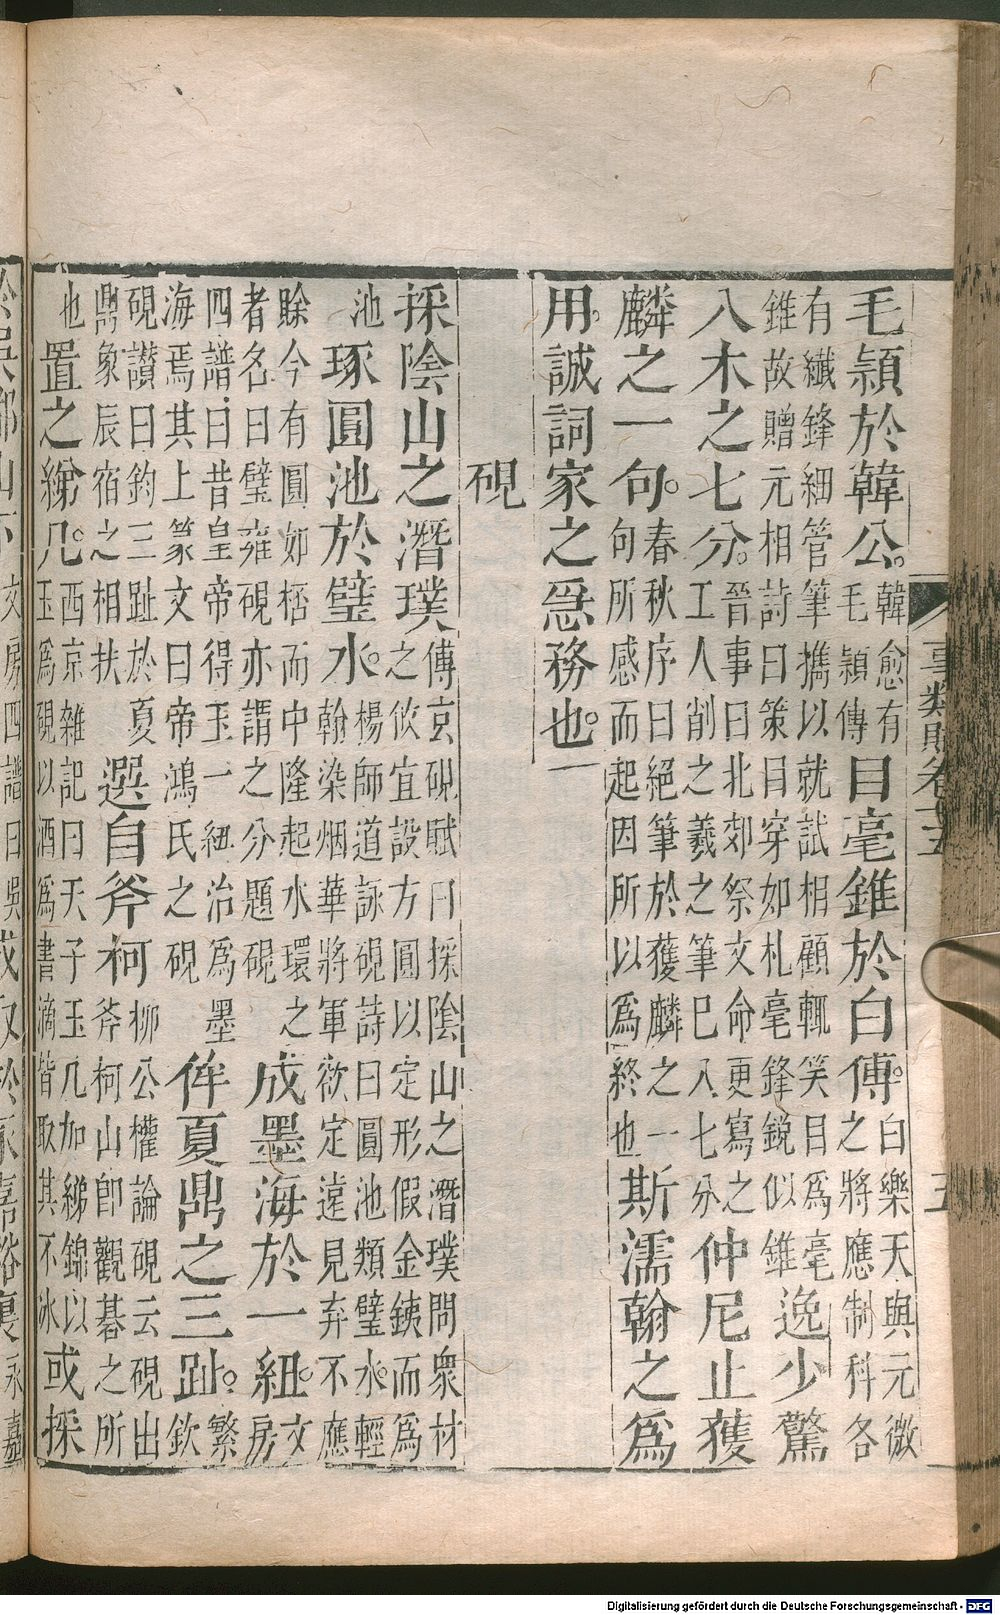 事類賦卷十五　五
毛頴於韓公。韓愈有毛頴傳目毫錐於白傅。白樂天與元微之將應制科各
有纖鋒細管筆攜以就試相顧輒笑目爲毫錐故贈元相詩曰策目穿如札毫鋒銳似錐逸少驚
八木之七分。晉事曰北郊祭文命更寫之工人削之羲之筆已入七分仲尼止獲
麟之一句。春秋序曰絕筆於獲麟之一句所感而起因所以爲終也斯濡翰之爲
用。誠詞家之急務也。
硯
採陰山之潛璞傅京硯賦曰採陰山之潛璞問衆材之攸宜設方圓以定形假金鐵而爲
池琢圓池於璧水。楊師道詠硯詩曰圓池類璧水輕翰染烟華將軍欲定遠見弃不應
賖今有圓如栝而中隆起水環之者名曰璧雍硯亦謂之分題硯成墨海於一紐。文房
四譜曰昔皇帝得玉一紐治爲墨海焉其上篆文曰帝鴻氏之硯侔夏鼎之三趾。繁欽
硯讃曰鈞三趾於夏鼎象辰宿之相扶選自斧柯柳公權論硯云硯出斧柯山卽觀碁之所
也置之綈几。西京雜記曰天子玉几加綈錦以玉爲硯以酒爲書滴皆取其不冰或採
Digitalisierung gefördert durch die Deutsche Forschungsgemeinschaft - DFG